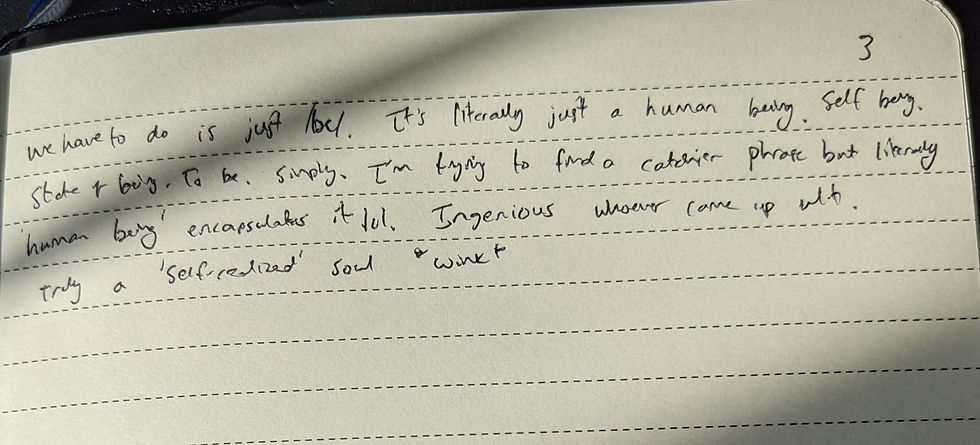 3
we have to do is just /be/. It's literally just a human being. Self being.
State of being. To be. Simply. I'm trying to find a catchier phrase but literally
'human being' encapsulates it lol. Ingenious whoever came up with.
Truly a 'self-realized' soul *wink*